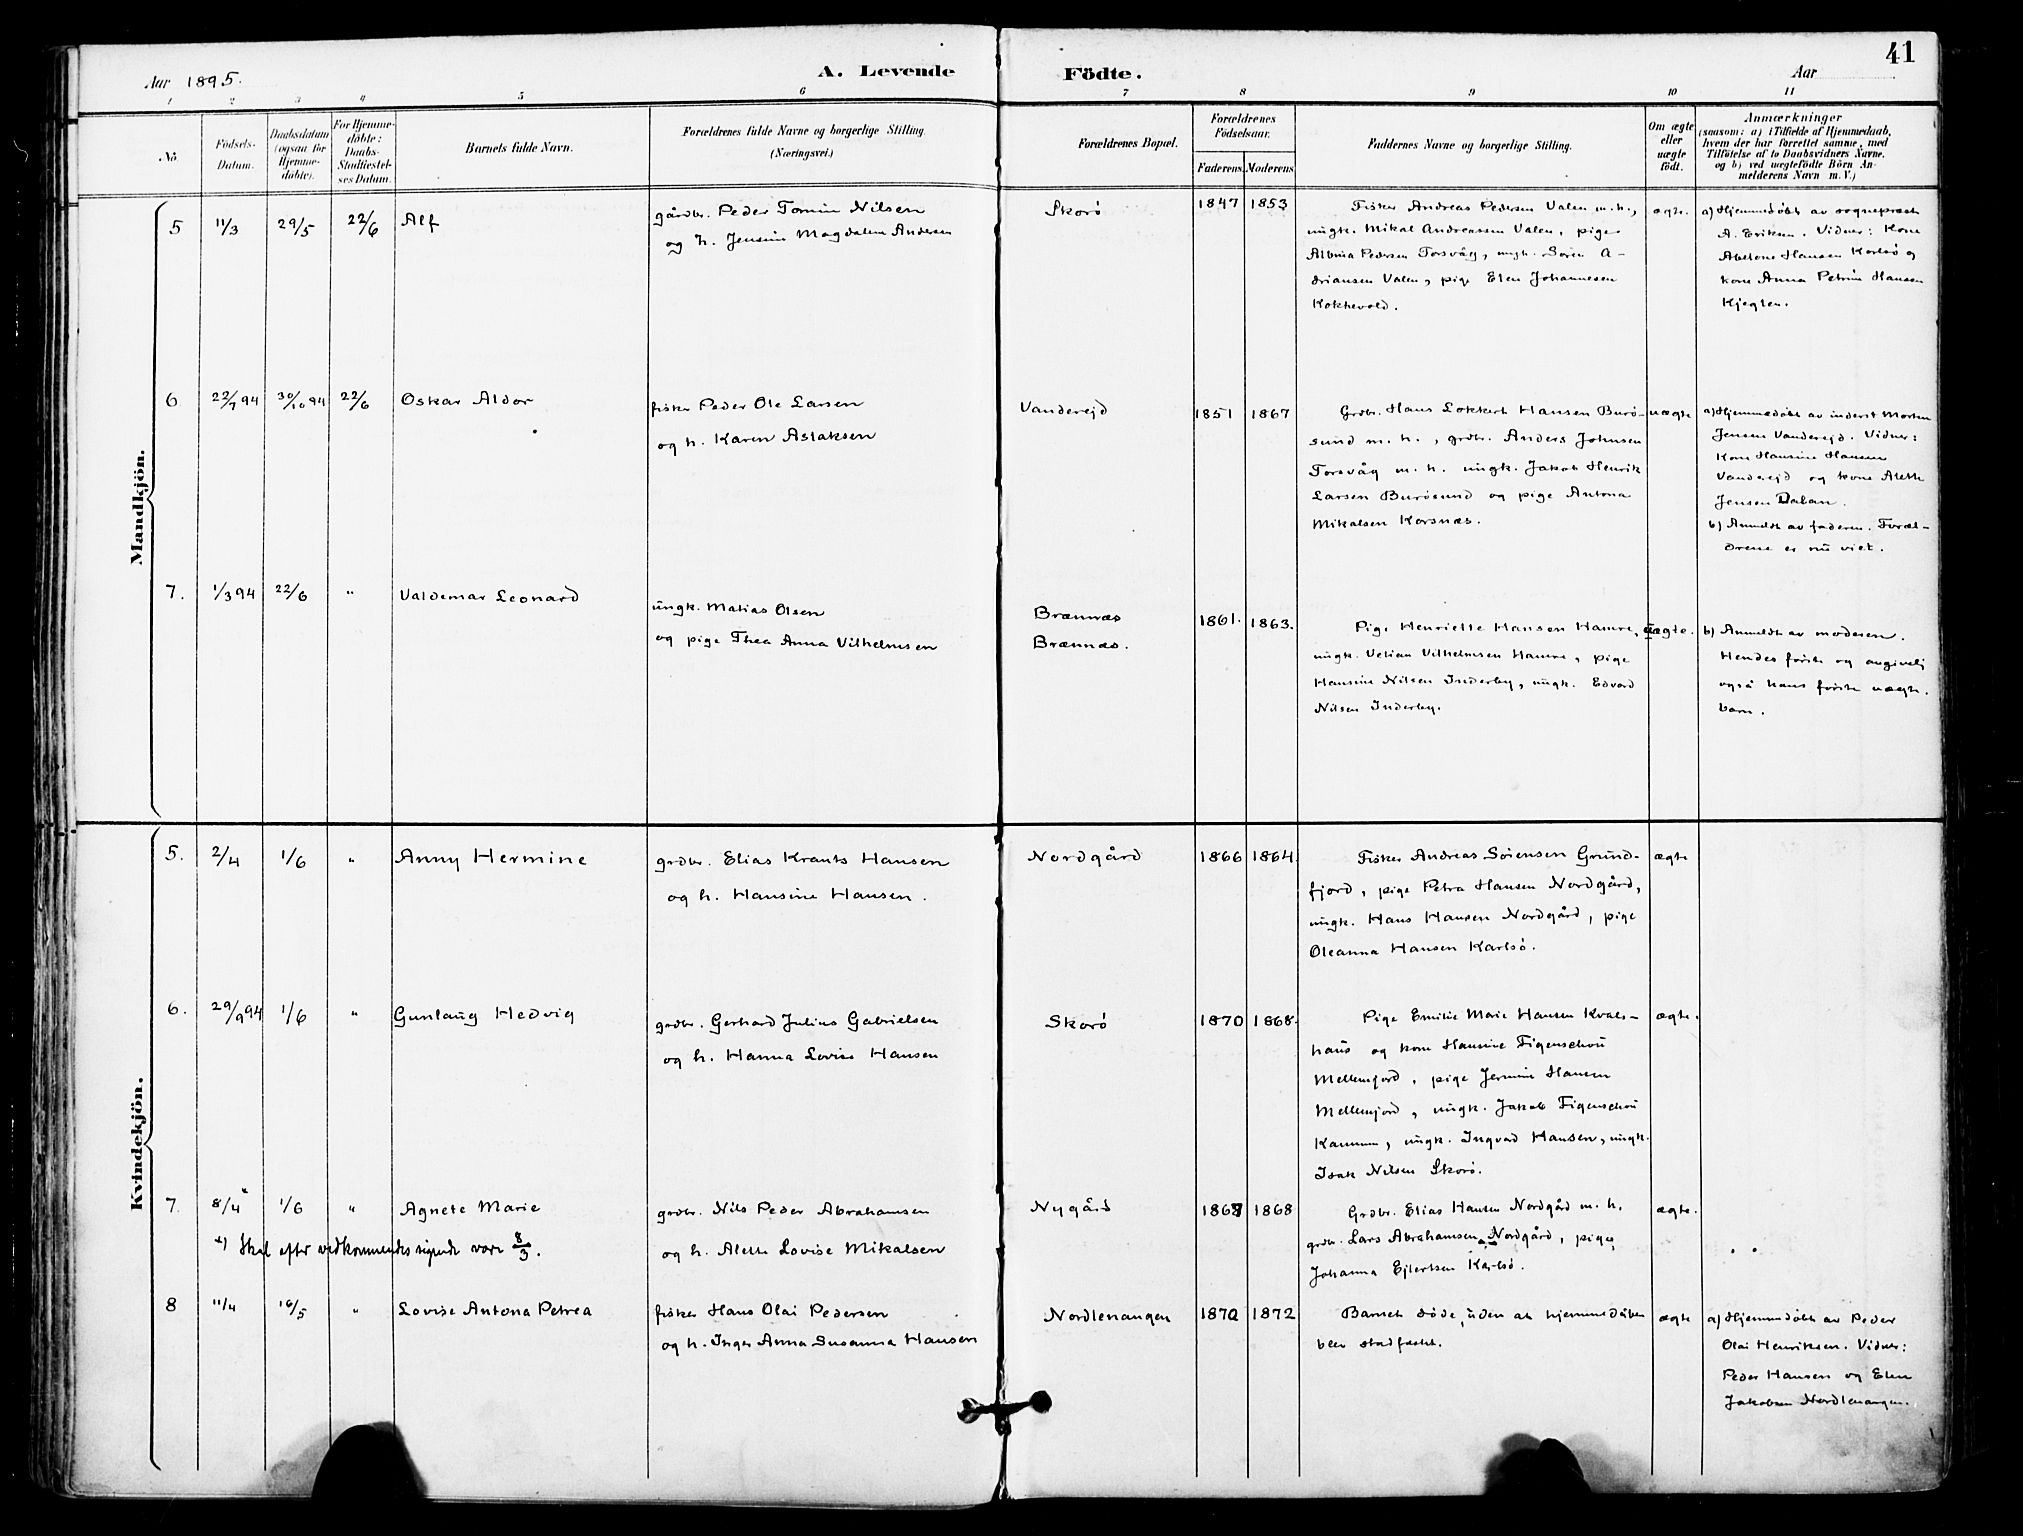 Aar 1895.
A. Levende
Födte.
Aar
41
1 2 3 4 5 6 7 8 9 10 11
No.
Födsels-
Datum.
Daabsdatum
(ogsaa for
Hjemme-
døbte).
For Hjemme-
døbte:
Daabs-
Stadfæstel-
ses Datum.
Barnets fulde Navn.
Forældrenes fulde Navne og borgerlige Stilling.
(Næringsvei.)
Forældrenes Bopæl.
Forældrenes
Födselsaar.
Faderens. Moderens.
Faddernes Navne og borgerlige Stilling.
Om ægte
eller
uægte
født.
Anmærkninger
(saasom: a) i Tilfælde af Hjemmedaab,
hvem der har forrettet samme, med
Tilføielse af to Daabsvidners Navne.
og b) ved uægtefødte Børn An-
melderens Navn m. V.)
Mandkjön.
5 11/3 29/5 22/6 Alf
gårdbr. Peder Tomin Nilsen
og h. Jensine Magdalena Andersen
Skorö
1847 1853
Fisker Andreas Pedersen Valen m. h.,
ungk. Mikal Andreassen Valen, pige
Albina Pedersen Torsvåg, ungk. Sören A-
driansen Valen, pige Elen Johannesen
Kokkevold.
ægte.
a) Hjemmedøbt av sogneprest
A. Eriksen. Vidner: Kone
Abelone Hansen Karlsö og
kone Anna Petrine Hansen
Kjegten.
6 22/7 94 30/10 94 22/6 Oskar Aldor
fisker Peder Ole Larsen
og h. Karen Aslaksen
Vanderejd
1851 1867
Grdbr. Hans Lokkert Hansen Burö-
sund m. h., grdbr. Anders Johnsen
Torsvåg m. h. ungk. Jakob Henrik
Larsen Burösund og pige Antona
Mikalsen Korsnæs.
uægte
a) Hjemmedøbt av inderst Morten
Jensen Vanderejd. Vidner:
Kone Hansine Hansen
Vanderejd og kone Alette
Jensen Dalan.
b) Anmeldt av faderen. Foræl-
drene er nu viet.
7. 1/3 94 22/6 " Valdemar Leonard
ungk. Matias Olsen
og pige Thea Anna Vilhelmsen
Brænnæs
Brænnæs.
1861. 1863.
Pige Henriette Hansen Hamre,
ungk. Vetian Vilhelmsen Hamre, pige
Hansine Nilsen Inderby, ungk. Edvard
Nilsen Inderby.
uægte.
b) Anmeldt av moderen.
Hendes første og angivelig
også hans første uægte
barn.
Kvindekjön.
5. 2/4 1/6 " Anny Hermine
grdbr. Elias Krants Hansen
og h. Hansine Hansen.
Nordgård
1866 1864.
Fisker Andreas Sörensen Grund-
fjord, pige Petra Hansen Nordgård,
ungk. Hans Hansen Nordgård, pige
Oleanna Hansen Karlsö.
ægte
6. 29/9 94 1/6 " Gunlaug Hedvig
grdbr. Gerhard Julius Gabrielsen
og h. Hanna Lovise Hansen
Skorö
1870 1868.
Pige Emilie Marie Hansen Kvals-
haus og kone Hansine Figenschou
Mellemfjord, pige Jermine Hansen
Mellemjord, ungk. Jakob Figenschou
Kammen, ungk. Ingvard Hansen, ungk.
Isak Nilsen Skorö.
ægte.
7. 8/4 x 1/6 " Agnete Marie
x) Skal efter vedkommendes sigende være 8/3.
grdbr. Nils Peder Abrahamsen
og h. Alette Lovise Mikalsen
Nygård
1867 1868
Grdbr. Elias Hansen Nordgård m. h.
grdbr. Lars Abrahamsen Nordgård, pige
Johanna Ejlertsen Karlsö.
ægte.
8 11/4 16/5 " Lovise Antona Petrea
fisker Hans Olai Pedersen
og h. Inger Anna Susanna Hansen
Nordlenangen
1870 1872
Barnet døde, uden at hjemmedåben
blev stadfæstet.
ægte
a) Hjemmedøbt av Peder
Olai Henriksen. Vidner:
Peder Hansen og Elen
Jakobsen Nordlenangen.